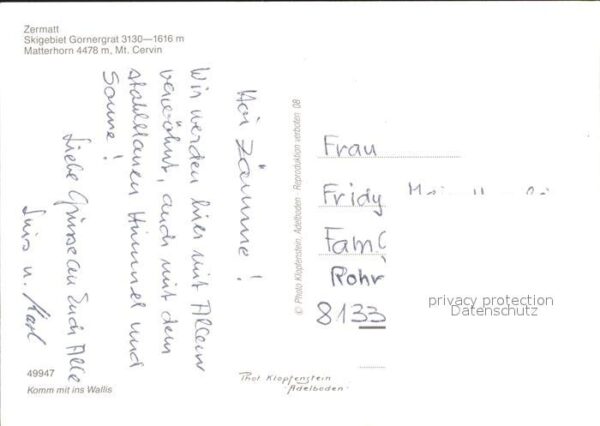 Zermatt
Skigebiet Gornergrat 3130—1616 m
Matterhorn 4478 m, Mt. Cervin
Hoi Zämme!
Wir werden hier mit Allem
verwöhnt, auch mit dem
stahlblauen Himmel und
Sonne!
Liebe Grüsse an Euch Alle
u. Karl
© Photo Klopfenstein, Adelboden · Reproduktion verboten 08
Frau
Fridy
Fam.
Rohr
8133
privacy protection
Datenschutz
49947
Komm mit ins Wallis
Phot Klopfenstein
Adelboden